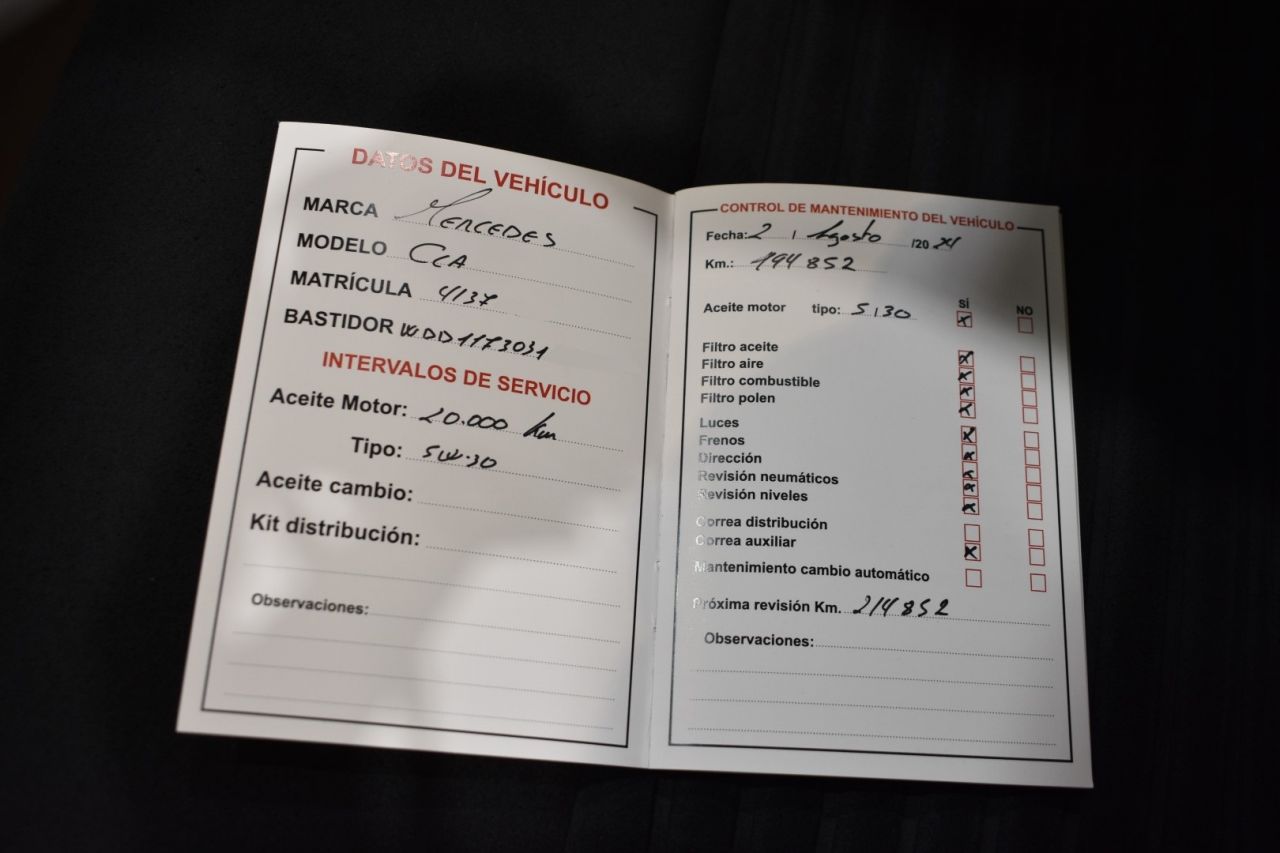 DATOS DEL VEHÍCULO
MARCA Mercedes
MODELO CLA
MATRÍCULA 4137
BASTIDOR WDD1173031
INTERVALOS DE SERVICIO
Aceite Motor: 20.000 km
Tipo: 5W-30
Aceite cambio:
Kit distribución:
Observaciones:
CONTROL DE MANTENIMIENTO DEL VEHÍCULO
Fecha: 2 / Agosto /20
Km.: 194852
SÍ NO
Aceite motor tipo: 5/30
Filtro aceite
Filtro aire
Filtro combustible
Filtro polen
Luces
Frenos
Dirección
Revisión neumáticos
Revisión niveles
Correa distribución
Correa auxiliar
Mantenimiento cambio automático
Próxima revisión Km. 214852
Observaciones: